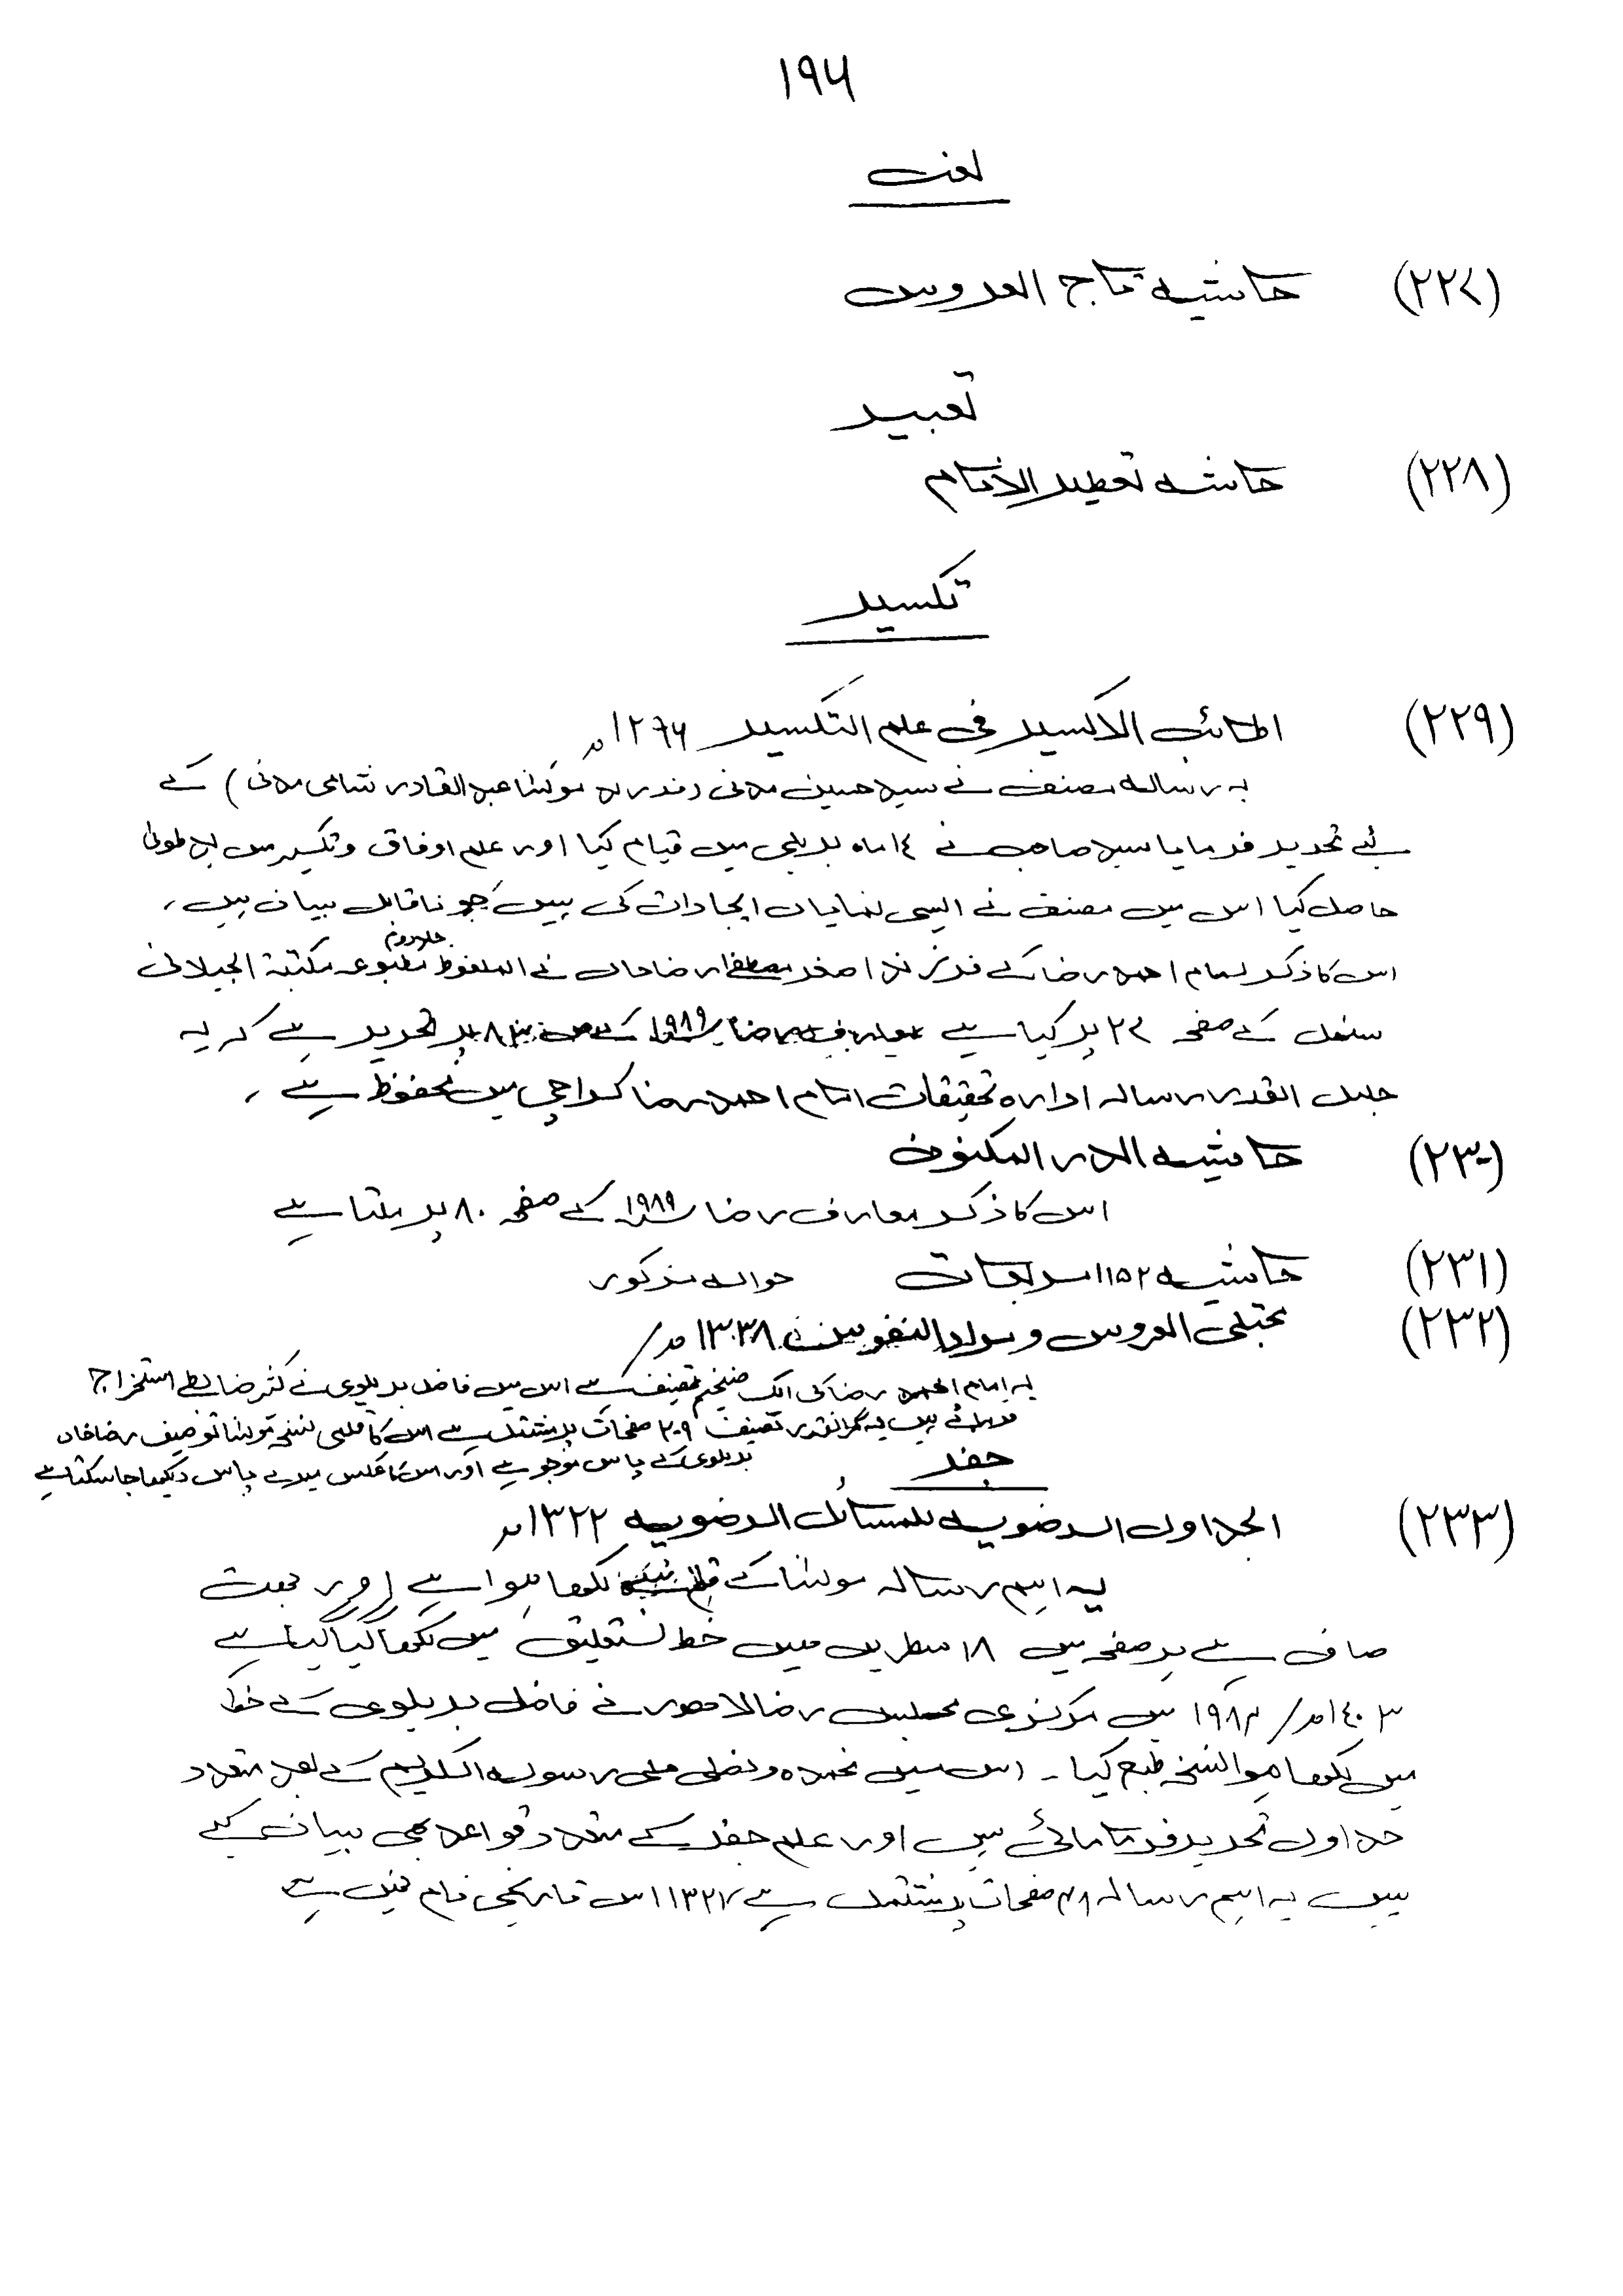 ۱۹۶
لغت
(۲۲۷) حاشیہ تاج العروس
تعبیر
(۲۲۸) حاشیہ تعطیر الانام
تکسیر
(۲۲۹) اطائب الاکسیر فی علم التکسیر ۱۲۹۶ھ
یہ رسالہ مصنف نے سید حسین مدنی (فرزند مولٰنا عبدالقادر شامی مدنی) کے
لئے تحریر فرمایا سید صاحب نے ۱۴ ماہ بریلی میں قیام کیا اور علم اوفاق و تکسیر میں ید طولیٰ
حاصل کیا اس میں مصنف نے ایسی نمایاں ایجادات کی ہیں جو ناقابل بیان ہیں،
اس کا ذکر امام احمد رضا کے فرزند اصغر مصطفےٰ رضا خاں نے الملفوظ جلد دوم مطبوعہ مکتبۃ الجیلانی
سنبھل کے صفحہ ۲۷ پر کیا ہے معارف رضا ۱۹۸۹ کے ص ۸۰ پر تحریر ہے کہ یہ
جلیل القدر رسالہ ادارہ تحقیقات امام احمد رضا کراچی میں محفوظ ہے،
(۲۳۰) حاشیہ الدر المکنون
اس کا ذکر معارف رضا ۱۹۸۹ کے صفحہ ۸۰ پر ملتا ہے
(۲۳۱) حاشیہ ۱۱۵۲ مربعات حوالہ مذکور
(۲۳۲) مجتلی العروس و مراد النفوس ۱۳۳۸ھ/
یہ امام احمد رضا کی ایک ضخیم تصنیف ہے اس میں فاضل بریلوی نے کثیر ضابطے استخراج
فرمائے ہیں یہ گرانقدر تصنیف ۲۰۹ صفحات پر مشتمل ہے اس کا قلمی نسخہ مولٰنا توصیف رضا خاں
بریلوی کے پاس موجو ہے اور اس کا عکس میرے پاس دیکھا جا سکتا ہے
جفر
(۲۳۳) الجداول الرضویہ للمسائل الرضویہ ۱۳۲۲ھ
یہ اہم رسالہ مولٰنا کے قلم لکھا ہوا ہے اور بہت
صاف ہے ہر صفحہ میں ۱۸ سطریں ہیں خط نستعلیق میں لکھا گیا ہے
۱۴۰۳ھ/ ۱۹۸۳ میں مرکزی مجلس رضا لاھور نے فاضل بریلوی کے خط
میں لکھا ہوا نسخہ طبع کیا۔ اس میں نحمدہ ونصلی علی رسولہ الکریم کے بعد متعدد
جداول تحریر فرمائی ہیں اور علم جفر کے متعدد قواعد بھی بیان کیے
ہیں یہ اہم رسالہ ۴۸ صفحات پر مشتمل ہے ۱۳۲۲ اس تاریخی نام نہیں ہے